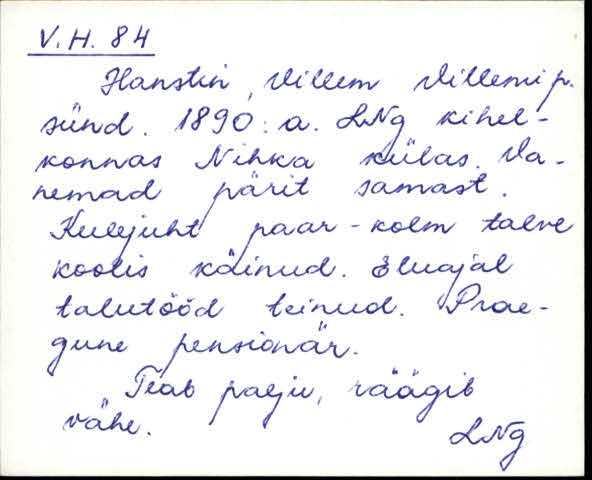 V. H. 84
Hanstin, Villem Villemi p.
sünd. 1890. a. LNg kihel-
konnas Nihka külas. Va-
nemad pärit samast.
Keelejuht paar-kolm talve
koolis käinud. Eluajal
talutööd teinud. Prae-
gune pensionär.
Teab palju, räägib
vähe.
LNg